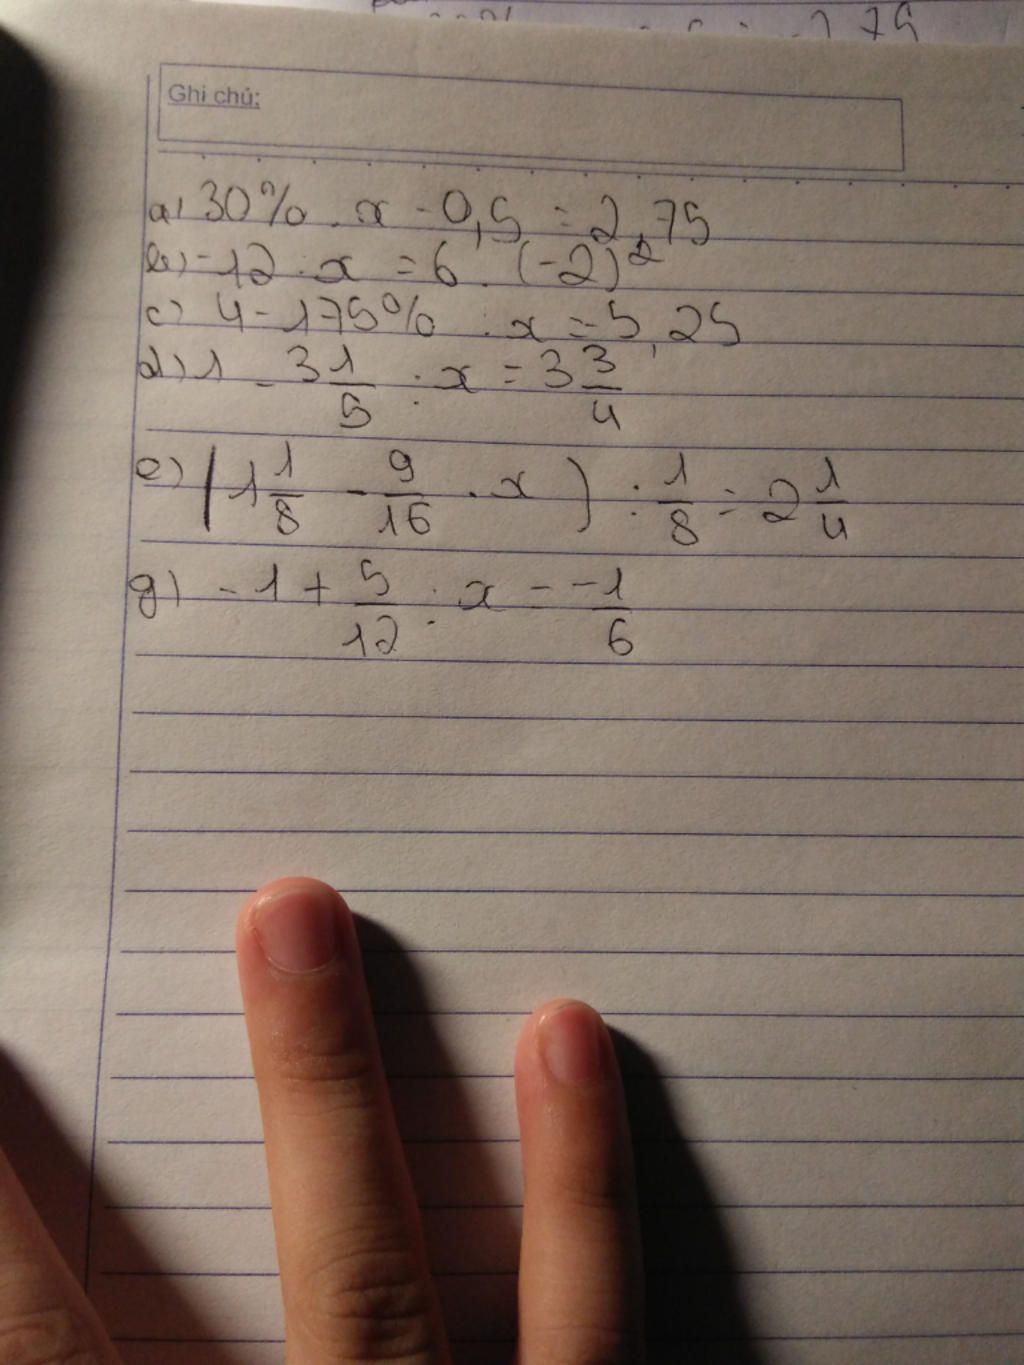 Ghi chú:
a) 30% . x - 0,5 = 2,75
b) -12 : x = 6 . (-2)²
c) 4 - 175% : x = -5,25
d) 1 - 3 1/5 : x = 3 3/4
e) (1 1/8 - 9/16 . x) : 1/8 = 2 1/4
g) -1 + 5/12 : x = -1/6